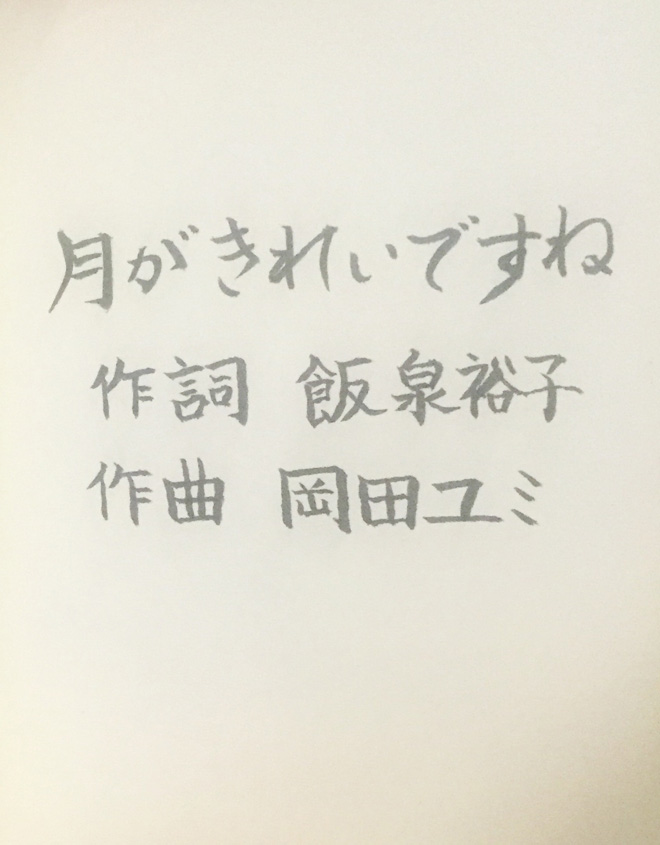 月がきれいですね
作詞 飯泉裕子
作曲 岡田ユミ